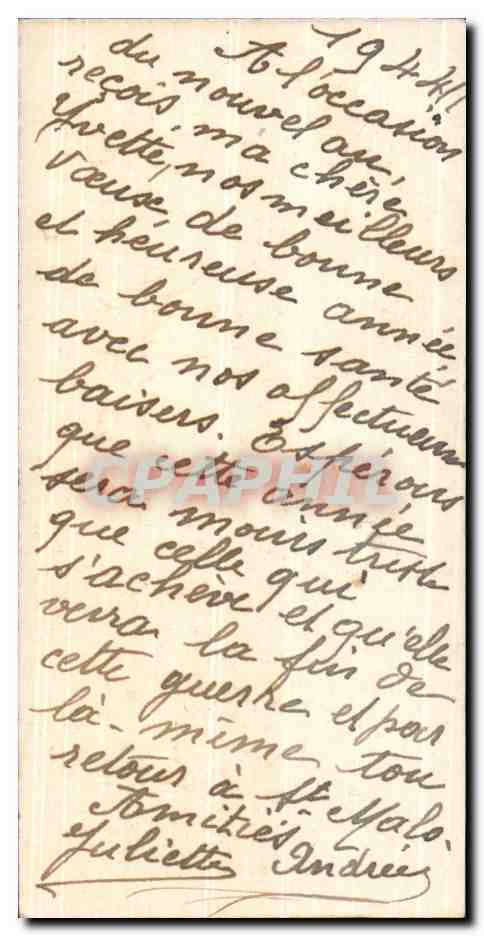 1944
A l'occasion
du nouvel an,
reçois, ma chère
Yvette, nos meilleurs
vœux, de bonne
et heureuse année
de bonne santé
avec nos affectueux
baisers. Espérons
que cette année
sera moins triste
que celle qui
s'achève et qu'elle
verra la fin de
cette guerre et par
là-même ton
retour à St Malo.
Amitiés
Juliette Andrée
CPAPHIL